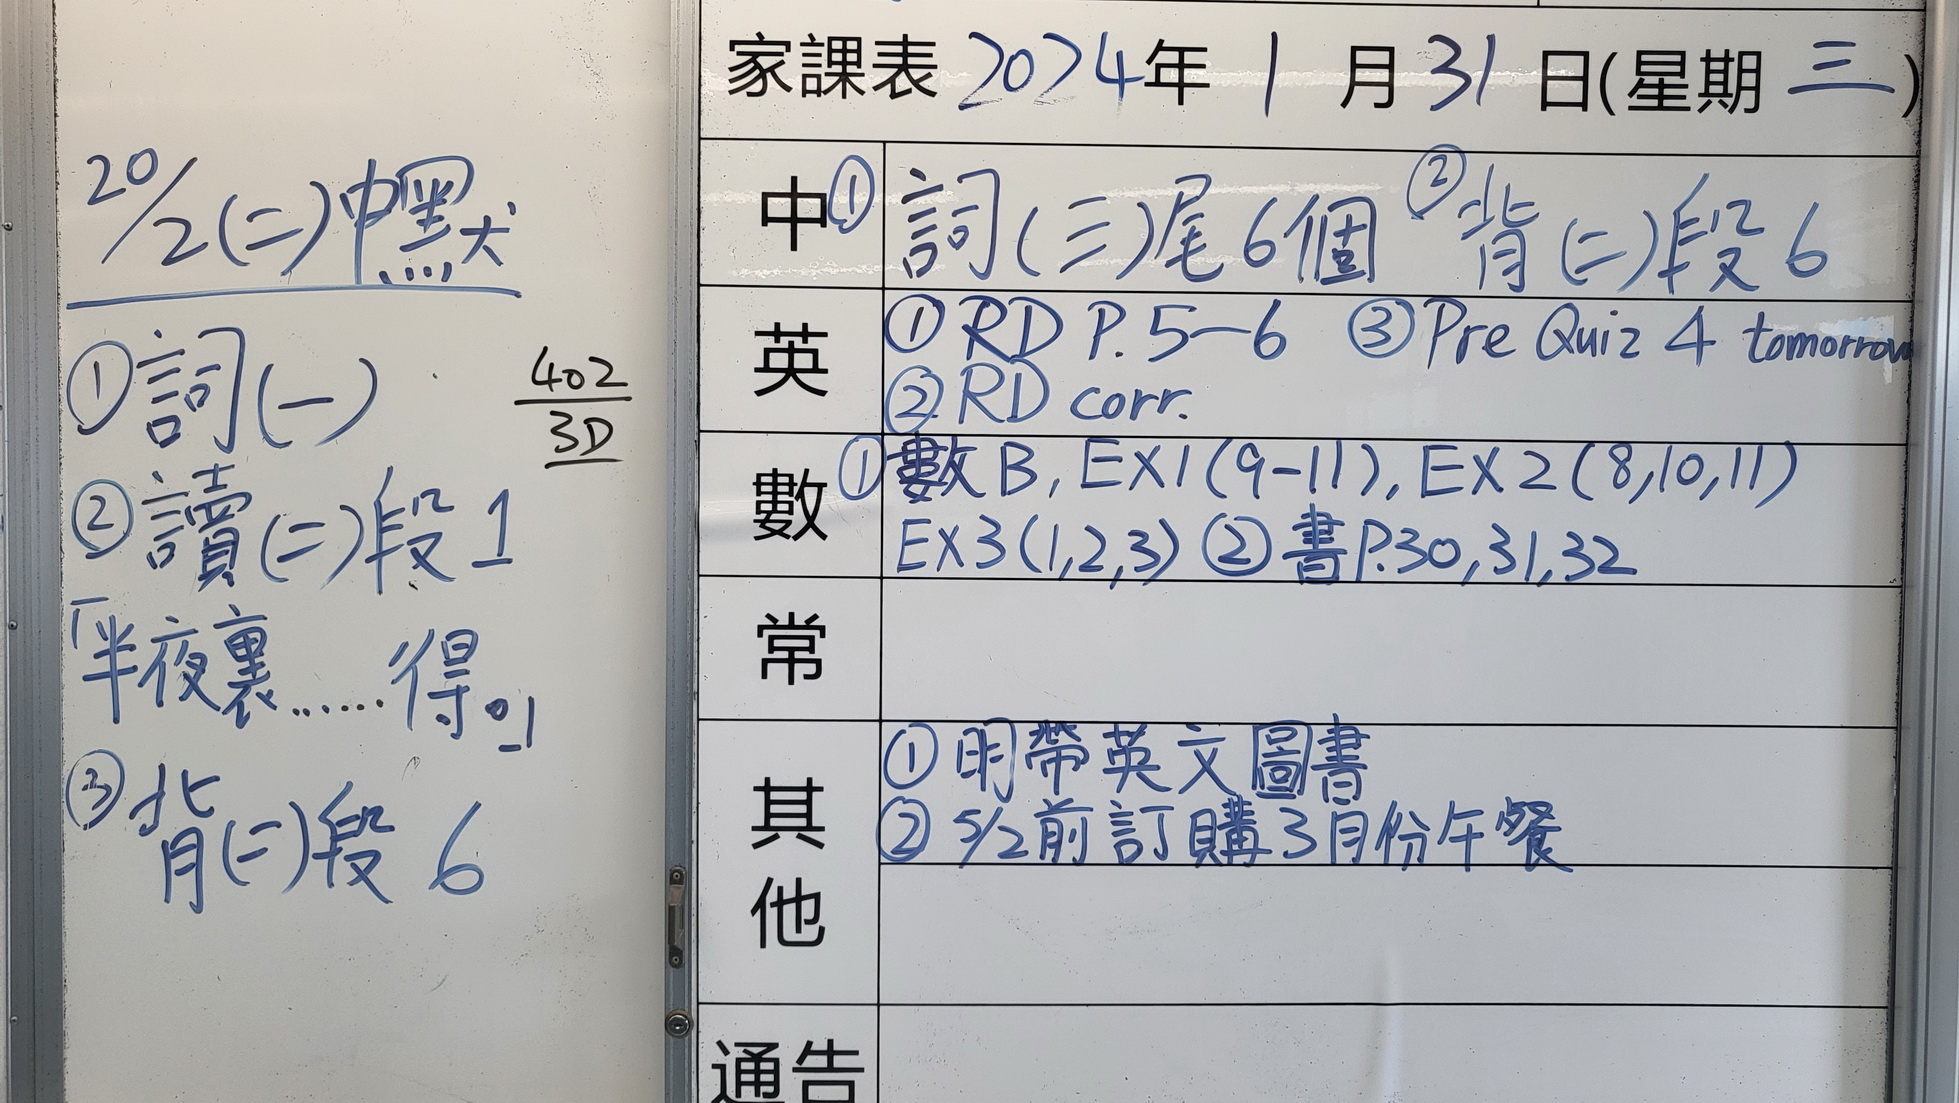 20/2(二)中默
①詞(一)
402
3D
②讀(二)段1
「半夜裏……得。」
③背(二)段6
家課表 2024年 1 月 31 日(星期 三 )
中 ①詞(三)尾6個 ②背(二)段6
英 ①RD P.5—6 ③Pre Quiz 4 tomorrow
②RD corr.
數 ①數B, EX1(9-11), EX2(8,10,11)
EX3(1,2,3) ②書P.30,31,32
常
其他 ①明帶英文圖書
②5/2前訂購3月份午餐
通告